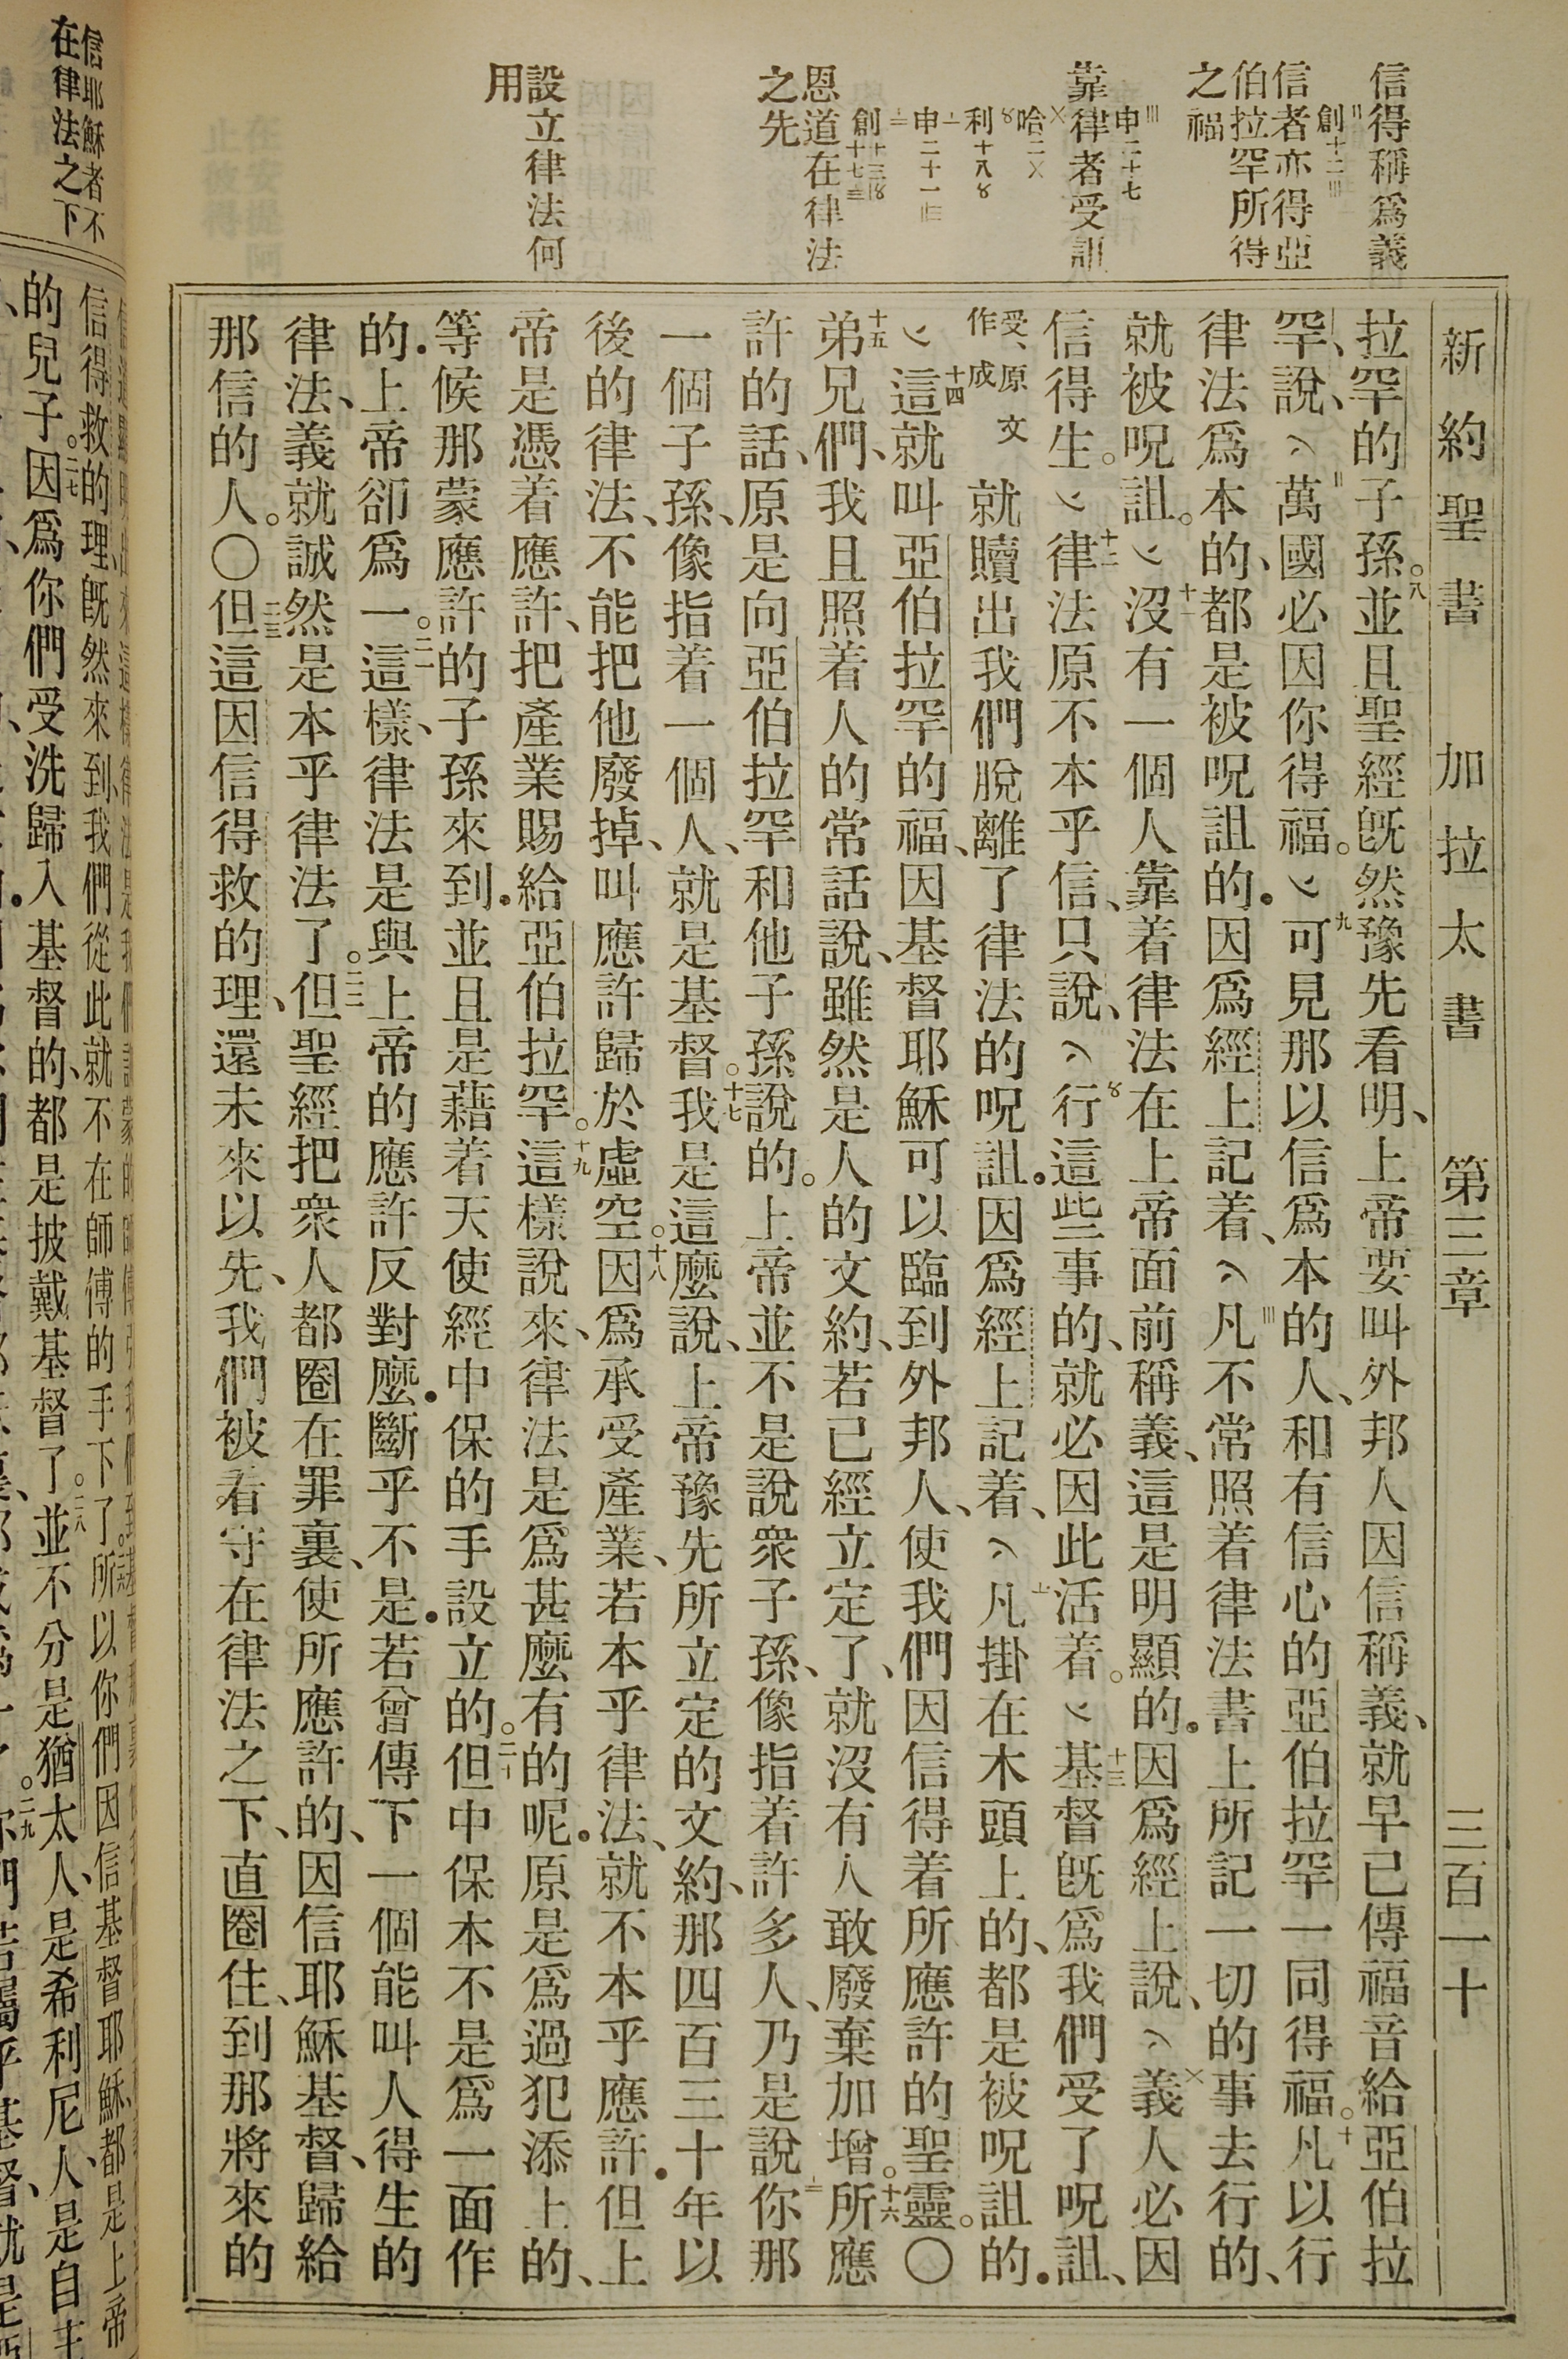 新約聖書　加拉太書　第三章　三百一十
信得稱爲義
創十二〣
信者亦得亞
伯拉罕所得
之福
申二十七
靠律者受詛
哈二〤
利十八
申二十一
恩道在律法
之先
設立律法何
用
拉罕的子孫。八並且聖經旣然豫先看明、上帝要叫外邦人因信稱義、就早已傳福音給亞伯拉
罕、說、萬國必因你得福。九可見那以信爲本的人、和有信心的亞伯拉罕一同得福。十凡以行
律法爲本的、都是被呪詛的．因爲經上記着、凡不常照着律法書上所記一切的事去行的、
就被呪詛。十一沒有一個人靠着律法在上帝面前稱義、這是明顯的．因爲經上說、義人必因
信得生。十二律法原不本乎信、只說、行這些事的、就必因此活着。十三基督旣爲我們受了呪詛、
受、原文
作成
就贖出我們脫離了律法的呪詛．因爲經上記着、凡掛在木頭上的、都是被呪詛的．
十四這就叫亞伯拉罕的福、因基督耶穌可以臨到外邦人、使我們因信得着所應許的聖靈。〇
十五弟兄們、我且照着人的常話說、雖然是人的文約、若已經立定了、就沒有人敢廢棄加增。十六所應
許的話、原是向亞伯拉罕和他子孫說的。上帝並不是說衆子孫、像指着許多人、乃是說你那
一個子孫、像指着一個人、就是基督。十七我是這麼說、上帝豫先所立定的文約、那四百三十年以
後的律法、不能把他廢掉、叫應許歸於虛空。十八因爲承受產業、若本乎律法、就不本乎應許．但上
帝是憑着應許、把產業賜給亞伯拉罕。十九這樣說來、律法是爲甚麼有的呢．原是爲過犯添上的、
等候那蒙應許的子孫來到．並且是藉着天使經中保的手設立的。二十但中保本不是爲一面作
的．上帝卻爲一。二一這樣、律法是與上帝的應許反對麼．斷乎不是．若曾傳下一個能叫人得生的
律法、義就誠然是本乎律法了。二二但聖經把衆人都圈在罪裏、使所應許的、因信耶穌基督、歸給
那信的人。〇二三但這因信得救的理、還未來以先、我們被看守在律法之下、直圈住、到那將來的
信耶穌者不
在律法之下
信得救的理旣然來到、我們從此就不在師傅的手下了。所以你們因信基督耶穌、都是上帝
的兒子。二七因爲你們受洗歸入基督的、都是披戴基督了。二八並不分是猶太人、是希利尼人、是自主